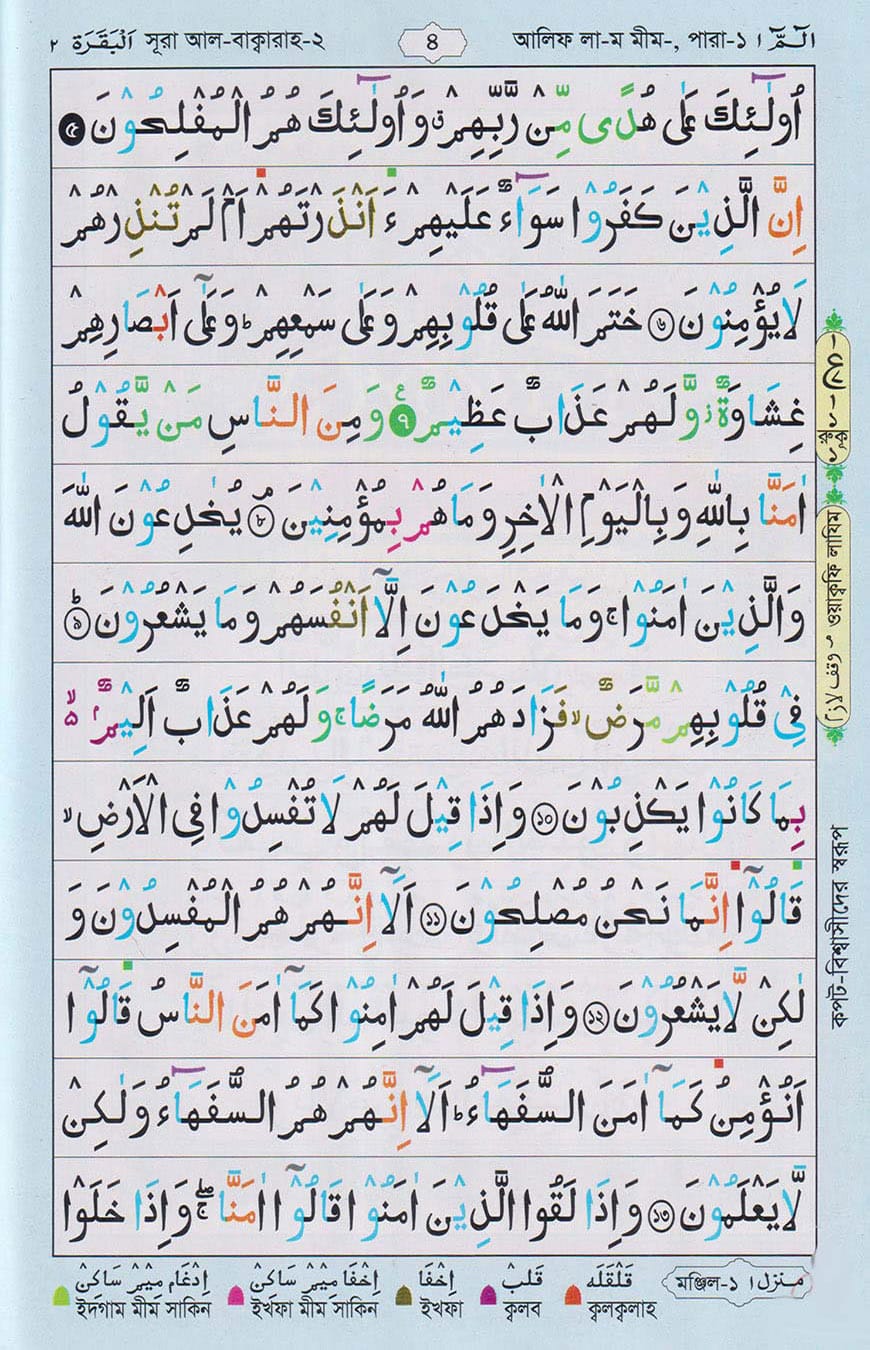 সূরা আল-বাক্বারাহ-২ اَلْبَقَرَة ٢
৪
আলিফ লা-ম মীম-, পারা-১ الٓمّٓ ١
اُولٰٓئِكَ عَلٰى هُدًى مِّنْ رَّبِّهِمْ ق وَاُولٰٓئِكَ هُمُ الْمُفْلِحُوْنَ ৫
اِنَّ الَّذِيْنَ كَفَرُوْا سَوَآءٌ عَلَيْهِمْ ءَاَنْذَرْتَهُمْ اَمْ لَمْ تُنْذِرْهُمْ
لَا يُؤْمِنُوْنَ ৬ خَتَمَ اللّٰهُ عَلٰى قُلُوْبِهِمْ وَعَلٰى سَمْعِهِمْ ط وَعَلٰٓى اَبْصَارِهِمْ
غِشَاوَةٌ ز وَّلَهُمْ عَذَابٌ عَظِيْمٌ ৭ ع وَمِنَ النَّاسِ مَنْ يَّقُوْلُ
اٰمَنَّا بِاللّٰهِ وَبِالْيَوْمِ الْاٰخِرِ وَمَا هُمْ بِمُؤْمِنِيْنَ ৮ م يُخٰدِعُوْنَ اللّٰهَ
وَالَّذِيْنَ اٰمَنُوْا ج وَمَا يَخْدَعُوْنَ اِلَّآ اَنْفُسَهُمْ وَمَا يَشْعُرُوْنَ ৯ ط
فِيْ قُلُوْبِهِمْ مَّرَضٌ لا فَزَادَهُمُ اللّٰهُ مَرَضًا ج وَلَهُمْ عَذَابٌ اَلِيْمٌ ۢ ۵ لا
بِمَا كَانُوْا يَكْذِبُوْنَ ১০ وَاِذَا قِيْلَ لَهُمْ لَا تُفْسِدُوْا فِى الْاَرْضِ لا
قَالُوْٓا اِنَّمَا نَحْنُ مُصْلِحُوْنَ ১১ اَلَآ اِنَّهُمْ هُمُ الْمُفْسِدُوْنَ وَ
لٰكِنْ لَّا يَشْعُرُوْنَ ১২ وَاِذَا قِيْلَ لَهُمْ اٰمِنُوْا كَمَآ اٰمَنَ النَّاسُ قَالُوْٓا
اَنُؤْمِنُ كَمَآ اٰمَنَ السُّفَهَآءُ ط اَلَآ اِنَّهُمْ هُمُ السُّفَهَآءُ وَلٰكِنْ
لَّا يَعْلَمُوْنَ ১৩ وَاِذَا لَقُوا الَّذِيْنَ اٰمَنُوْا قَالُوْٓا اٰمَنَّا ج صلے وَاِذَا خَلَوْا
وقف لازم - ওয়াক্বফি লাযিম
কপট-বিশ্বাসীদের স্বরূপ
منزل ١ মঞ্জিল-১
قَلْقَلَه
ক্বলক্বলাহ
قَلْبْ
ক্বলব
اِخْفَا
ইখফা
اِخْفَا مِيْمْ سَاكِنْ
ইখফা মীম সাকিন
اِدْغَام مِيْمْ سَاكِنْ
ইদগাম মীম সাকিন